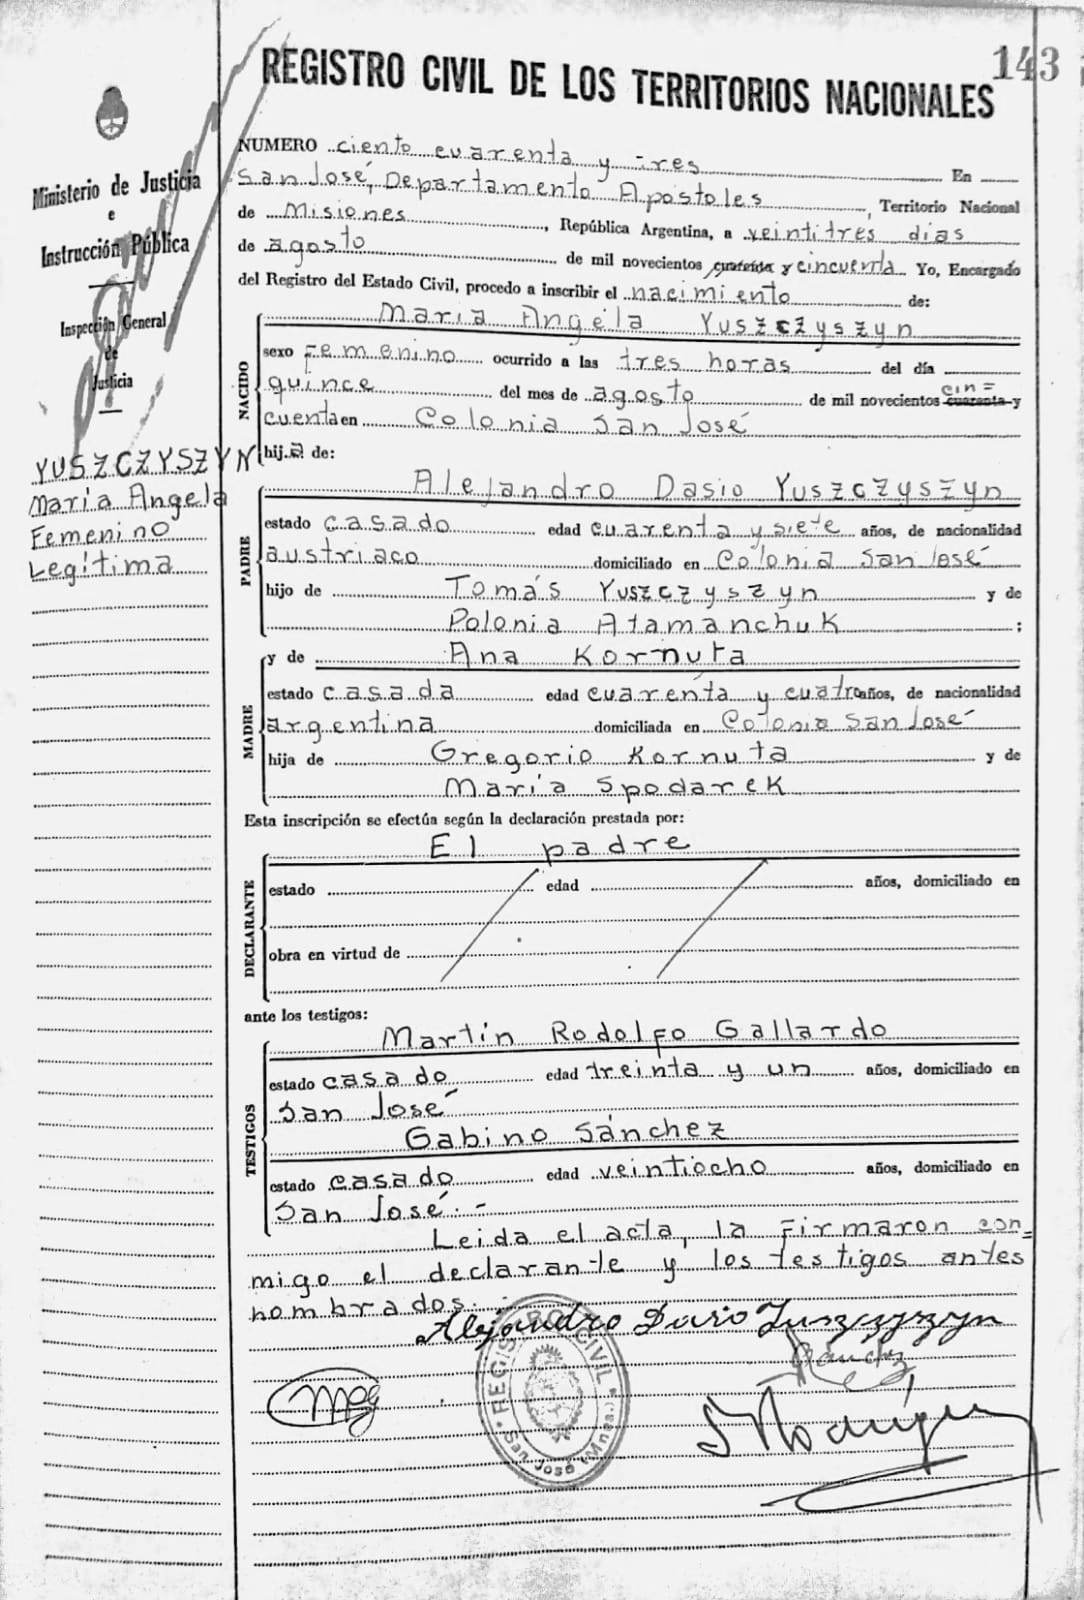 143
REGISTRO CIVIL DE LOS TERRITORIOS NACIONALES
Ministerio de Justicia
e
Instrucción Pública
Inspección General
de
Justicia
YUSZCZYSZYN
María Angela
Femenino
Legítima
NUMERO ciento cuarenta y tres En
San José, Departamento Apostoles, Territorio Nacional
de Misiones, República Argentina, a veintitres dias
de agosto de mil novecientos cuarenta y cincuenta Yo, Encargado
del Registro del Estado Civil, procedo a inscribir el nacimiento de:
NACIDO
María Angela Yuszczyszyn
sexo Femenino ocurrido a las tres horas del día
quince del mes de agosto de mil novecientos cuarenta y cin=
cuenta en Colonia San José
hij.a de:
PADRE
Alejandro Dasio Yuszczyszyn
estado casado edad cuarenta y siete años, de nacionalidad
austriaco domiciliado en Colonia San José
hijo de Tomás Yuszczyszyn y de
Polonia Atamanchuk ;
MADRE
y de Ana Kornuta
estado casada edad cuarenta y cuatro años, de nacionalidad
argentina domiciliada en Colonia San José
hija de Gregorio Kornuta y de
María Spodarek
Esta inscripción se efectúa según la declaración prestada por:
DECLARANTE
El padre
estado edad años, domiciliado en
obra en virtud de
ante los testigos:
TESTIGOS
Martín Rodolfo Gallardo
estado casado edad treinta y un años, domiciliado en
San José
Gabino Sánchez
estado casado edad veintiocho años, domiciliado en
San José.-
Leida el acta, la firmaron con=
migo el declarante y los testigos antes
nombrados.
Alejandro Dasio Yuszczyszyn
Sánchez
REGISTRO CIVIL
San José (Mnes.)